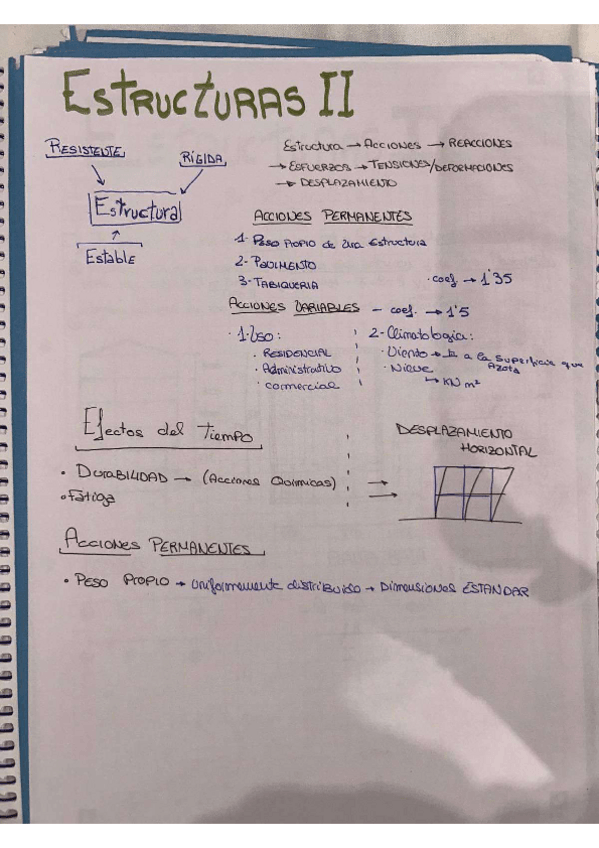 ESTRUCTURAS II
RESISTENTE
RÍGIDA
Estructura
Estable
Estructura → ACCIONES → REACCIONES
→ ESFUERZOS → TENSIONES/DEFORMACIONES
→ DESPLAZAMIENTO
ACCIONES PERMANENTES
1- PESO PROPIO de una Estructura
2- PAVIMENTO
3- TABIQUERIA
· coef → 1'35
ACCIONES VARIABLES - coef. → 1'5
· 1. Uso:
· RESIDENCIAL
· Administrativo
· comercial
2- Climatologia:
· Viento → a la superficie que
AZOTA
· Nieve
→ KN m²
Efectos del Tiempo
• DURABILIDAD → (Acciones Químicas)
• Fatiga
DESPLAZAMIENTO
HORIZONTAL
ACCIONES PERMANENTES
• PESO PROPIO → uniformemente distribuido → Dimensiones ESTANDAR